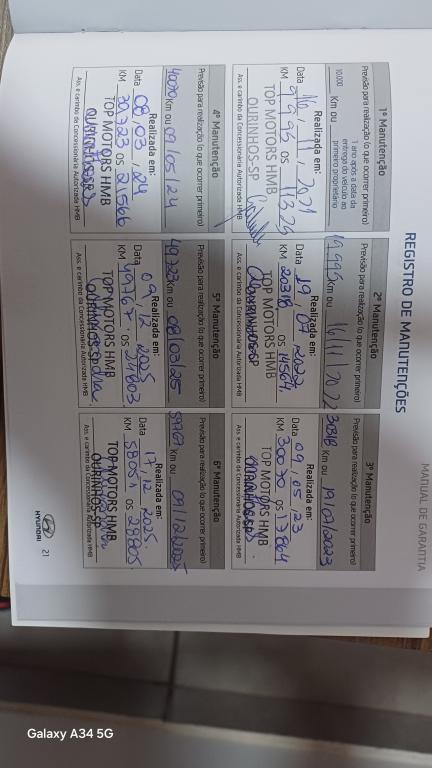 MANUAL DE GARANTIA
REGISTRO DE MANUTENÇÕES
1ª Manutenção
Previsão para realização (o que ocorrer primeiro)
10.000 Km ou 1 ano após a data da entrega do veículo ao primeiro proprietário
Realizada em:
Data 16 / 11 / 2021
KM 9995 OS 11325
TOP MOTORS HMB
OURINHOS-SP
Ass. e carimbo da Concessionária Autorizada HMB
2ª Manutenção
Previsão para realização (o que ocorrer primeiro)
19.995 Km ou 16/11/2022
Realizada em:
Data 19 / 07 / 2022
KM 20318 OS 14564
TOP MOTORS HMB
OURINHOS-SP
Ass. e carimbo da Concessionária Autorizada HMB
3ª Manutenção
Previsão para realização (o que ocorrer primeiro)
30318 Km ou
Realizada em:
Data 09 / 05 / 23
KM 30070 OS 17864
TOP MOTORS HMB
OURINHOS-SP
Ass. e carimbo da Concessionária Autorizada HMB
4ª Manutenção
Previsão para realização (o que ocorrer primeiro)
40070 Km ou 09/05/24
Realizada em:
Data 08 / 03 / 24
KM 39723 OS 21566
TOP MOTORS HMB
OURINHOS-SP
Ass. e carimbo da Concessionária Autorizada HMB
5ª Manutenção
Previsão para realização (o que ocorrer primeiro)
49723 Km ou 08/03/25
Realizada em:
Data
KM 49767 OS
TOP MOTORS HMB
OURINHOS-SP
Ass. e carimbo da Concessionária Autorizada HMB
6ª Manutenção
Previsão para realização (o que ocorrer primeiro)
59767 Km ou 09/12/2025
Realizada em:
Data 17 / 12 / 2025
KM 58051 OS 28805
TOP MOTORS HMB
OURINHOS-SP
Ass. e carimbo da Concessionária Autorizada HMB
HYUNDAI 21
Galaxy A34 5G